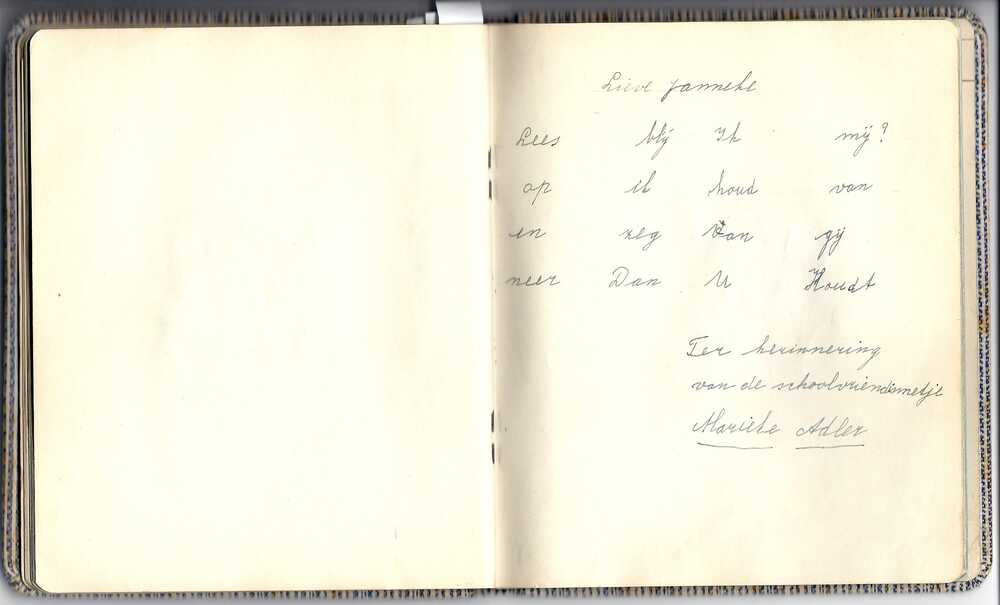 Lieve Janneke
Lees blij Ik mij?
op ik houd van
en zeg Van gij
neer Dan U Houdt
Ter herinnering
van de schoolvriendinnetje
Marieke Adler